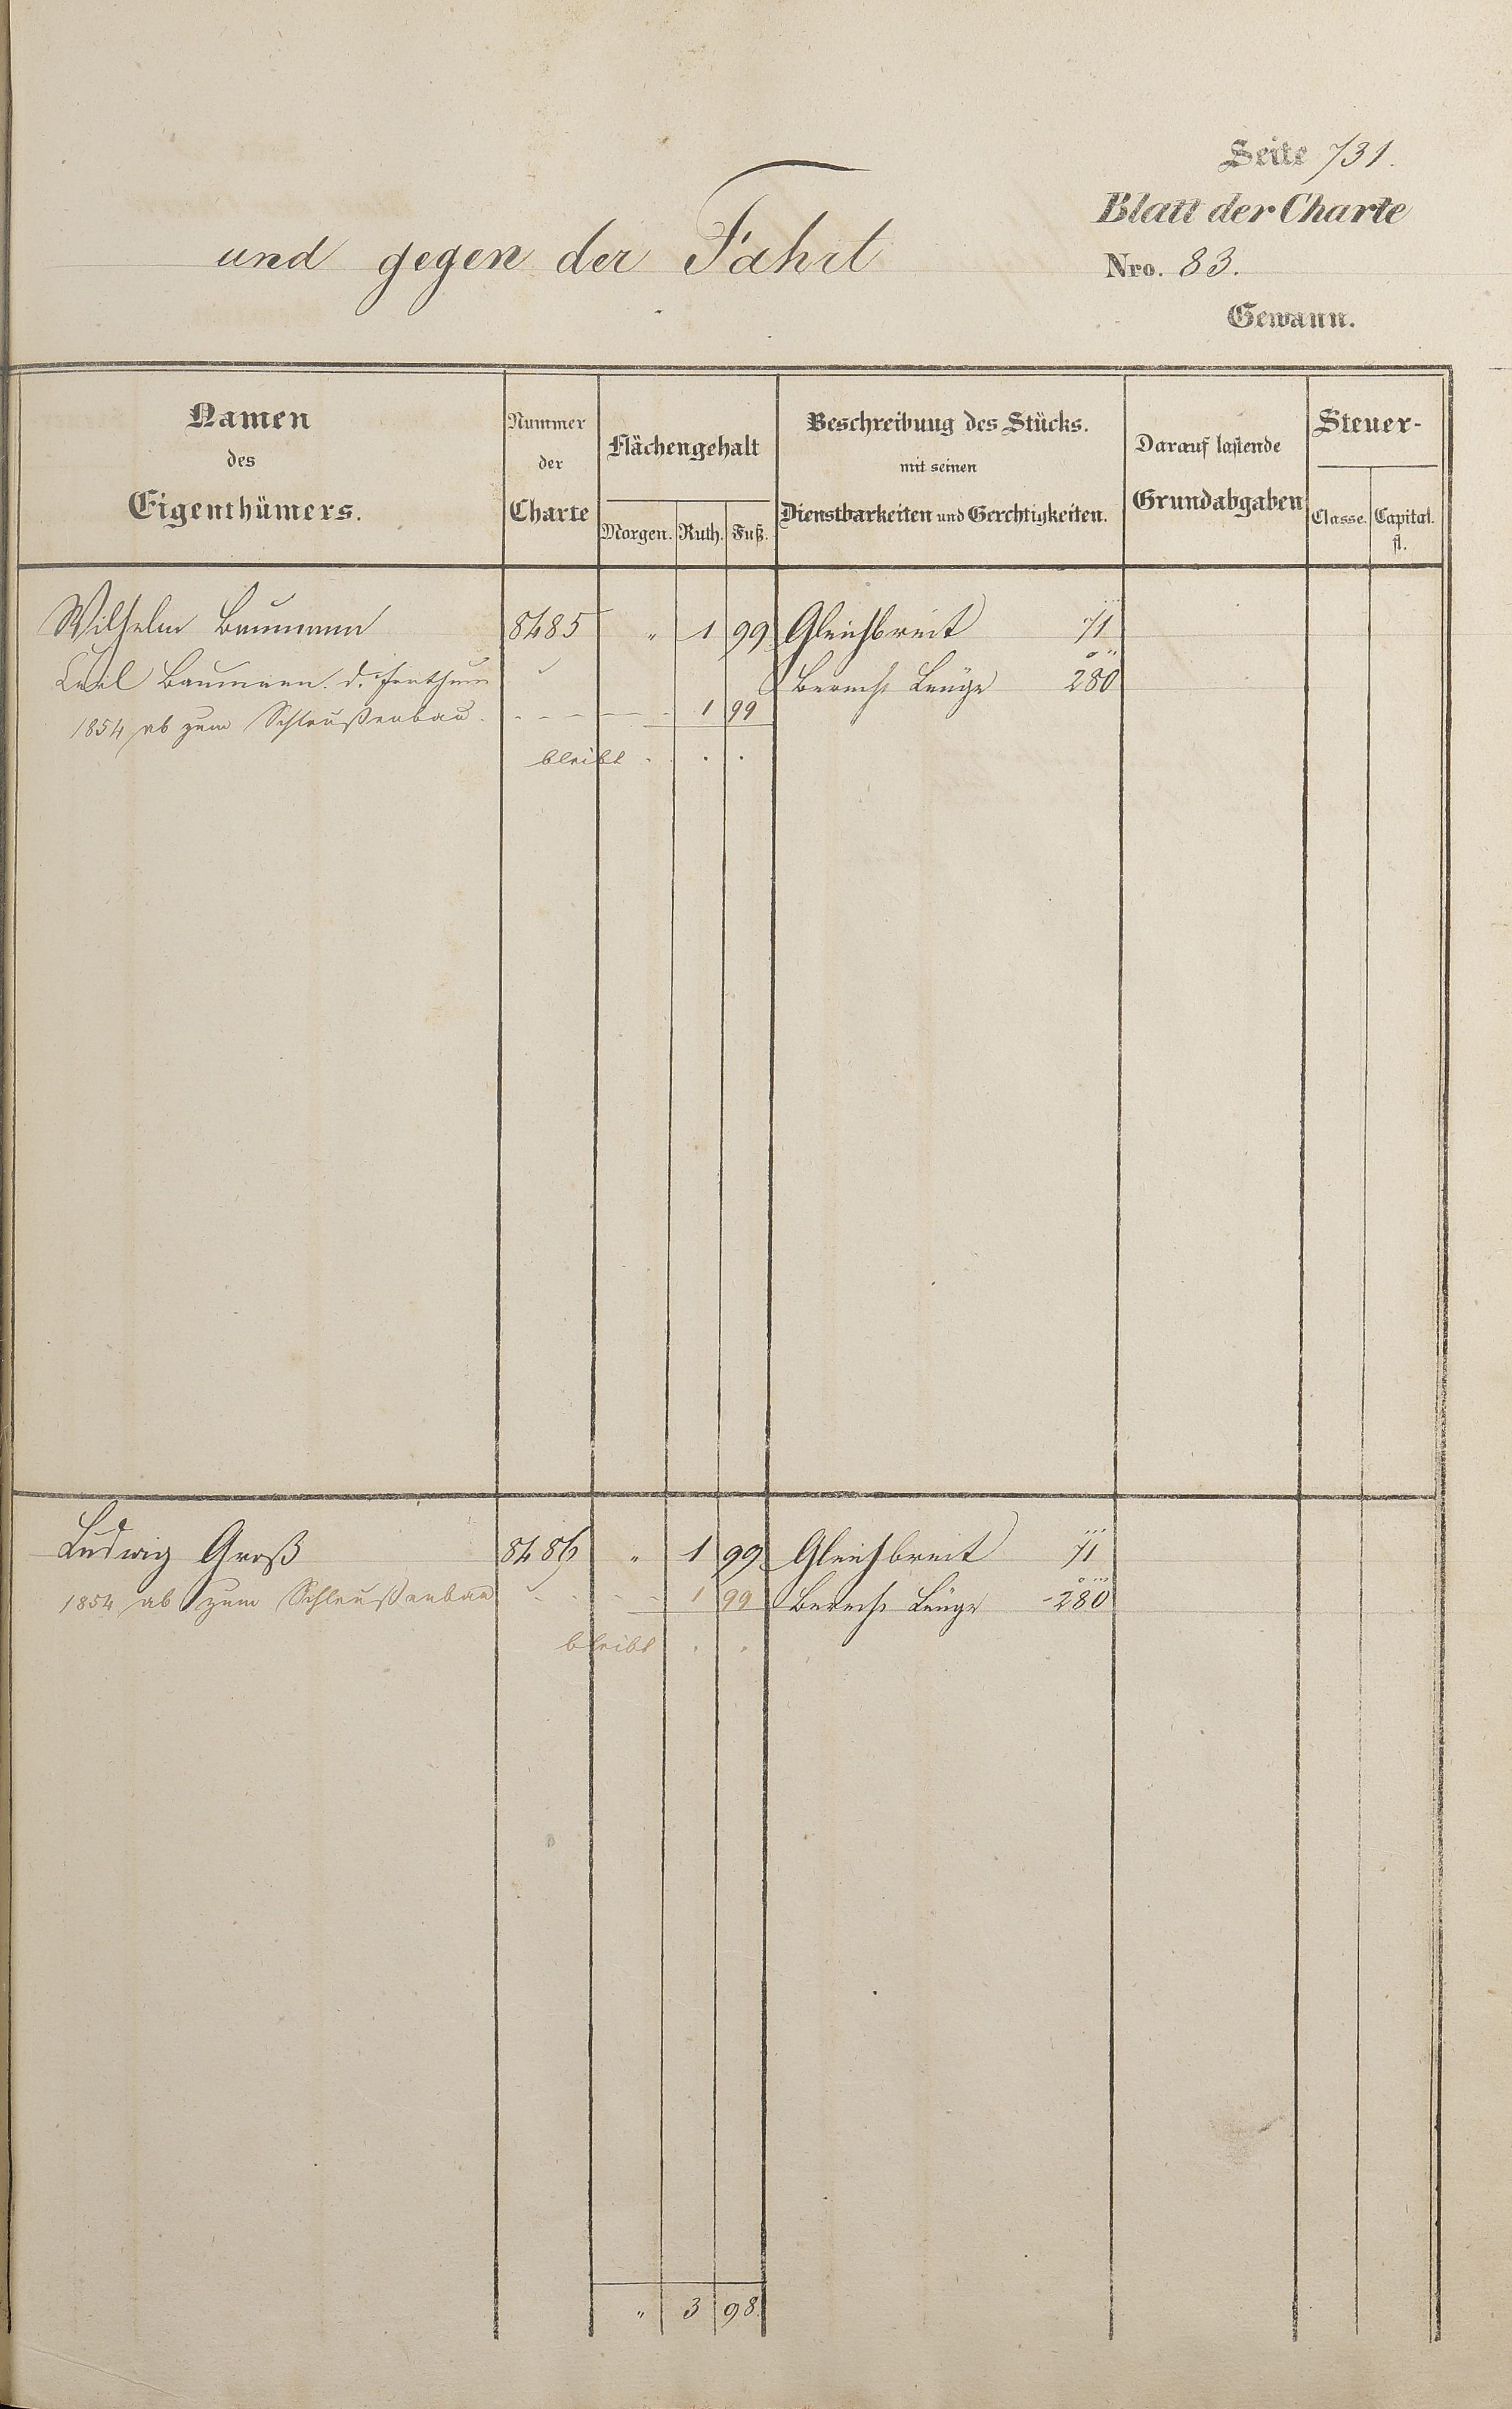 Seite 731.
Blatt der Charte
und gegen der Fahrt
Nro. 83.
Gewann.
Namen
des
Eigenthümers.
Nummer
der
Charte
Flächengehalt
Morgen. Ruth. Fuß.
Beschreibung des Stücks.
mit seinen
Dienstbarkeiten und Gerchtigkeiten.
Darauf lastende
Grundabgaben
Steuer-
Classe. Capital.
fl.
Wilhelm Baumann 8485 " 1 99 Gleichbreit 71
Carl Baumann. d. Berech Länge 280
1854 ab zum Schleußenbau. 1 99
bleibt . . .
Ludwig Groß 8486 " 1 99 Gleichbreit 71
1854 ab zum Schleußenbau 1 99 Berech Länge 280
bleibt . .
" 3 98.